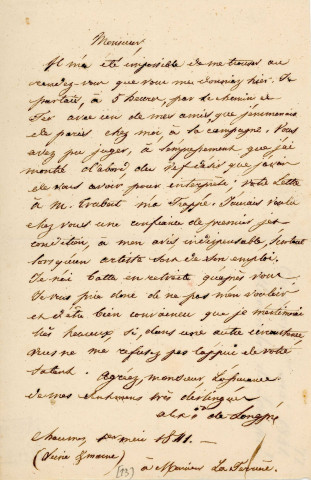 Monsieur
Il m'a été impossible de me trouver au
rendez-vous que vous me donniez hier. Je
partais, à 5 heures, par le chemin de
fer avec un de mes amis, que j'emmenais
de paris chez moi, à la campagne. Vous
avez pu juger, à l'empressement que j'ai
montré d'abord du vif désir que j'avais
de vous avoir pour interprète; votre lettre
à M. trabut m'a frappé. J'aurais voulu
chez vous une confiance de premier jet
condition, à mon avis indispensable, surtout
lorsqu'un artiste sort de son emploi.
Je n'ai battu en retraite qu'après vous
Je vous prie donc de ne pas m'en vouloir
et d'être bien convaincu que je m'estimerais
très heureux, si, dans une autre circonstance,
vous ne me refusez pas l'appui de votre
talent.
Agréez, monsieur, l'assurance
de mes sentimens très distingués
alex de Longpré
1er mai 1841. —
(Seine & marne)
(93)
à Monsieur La Ferrière